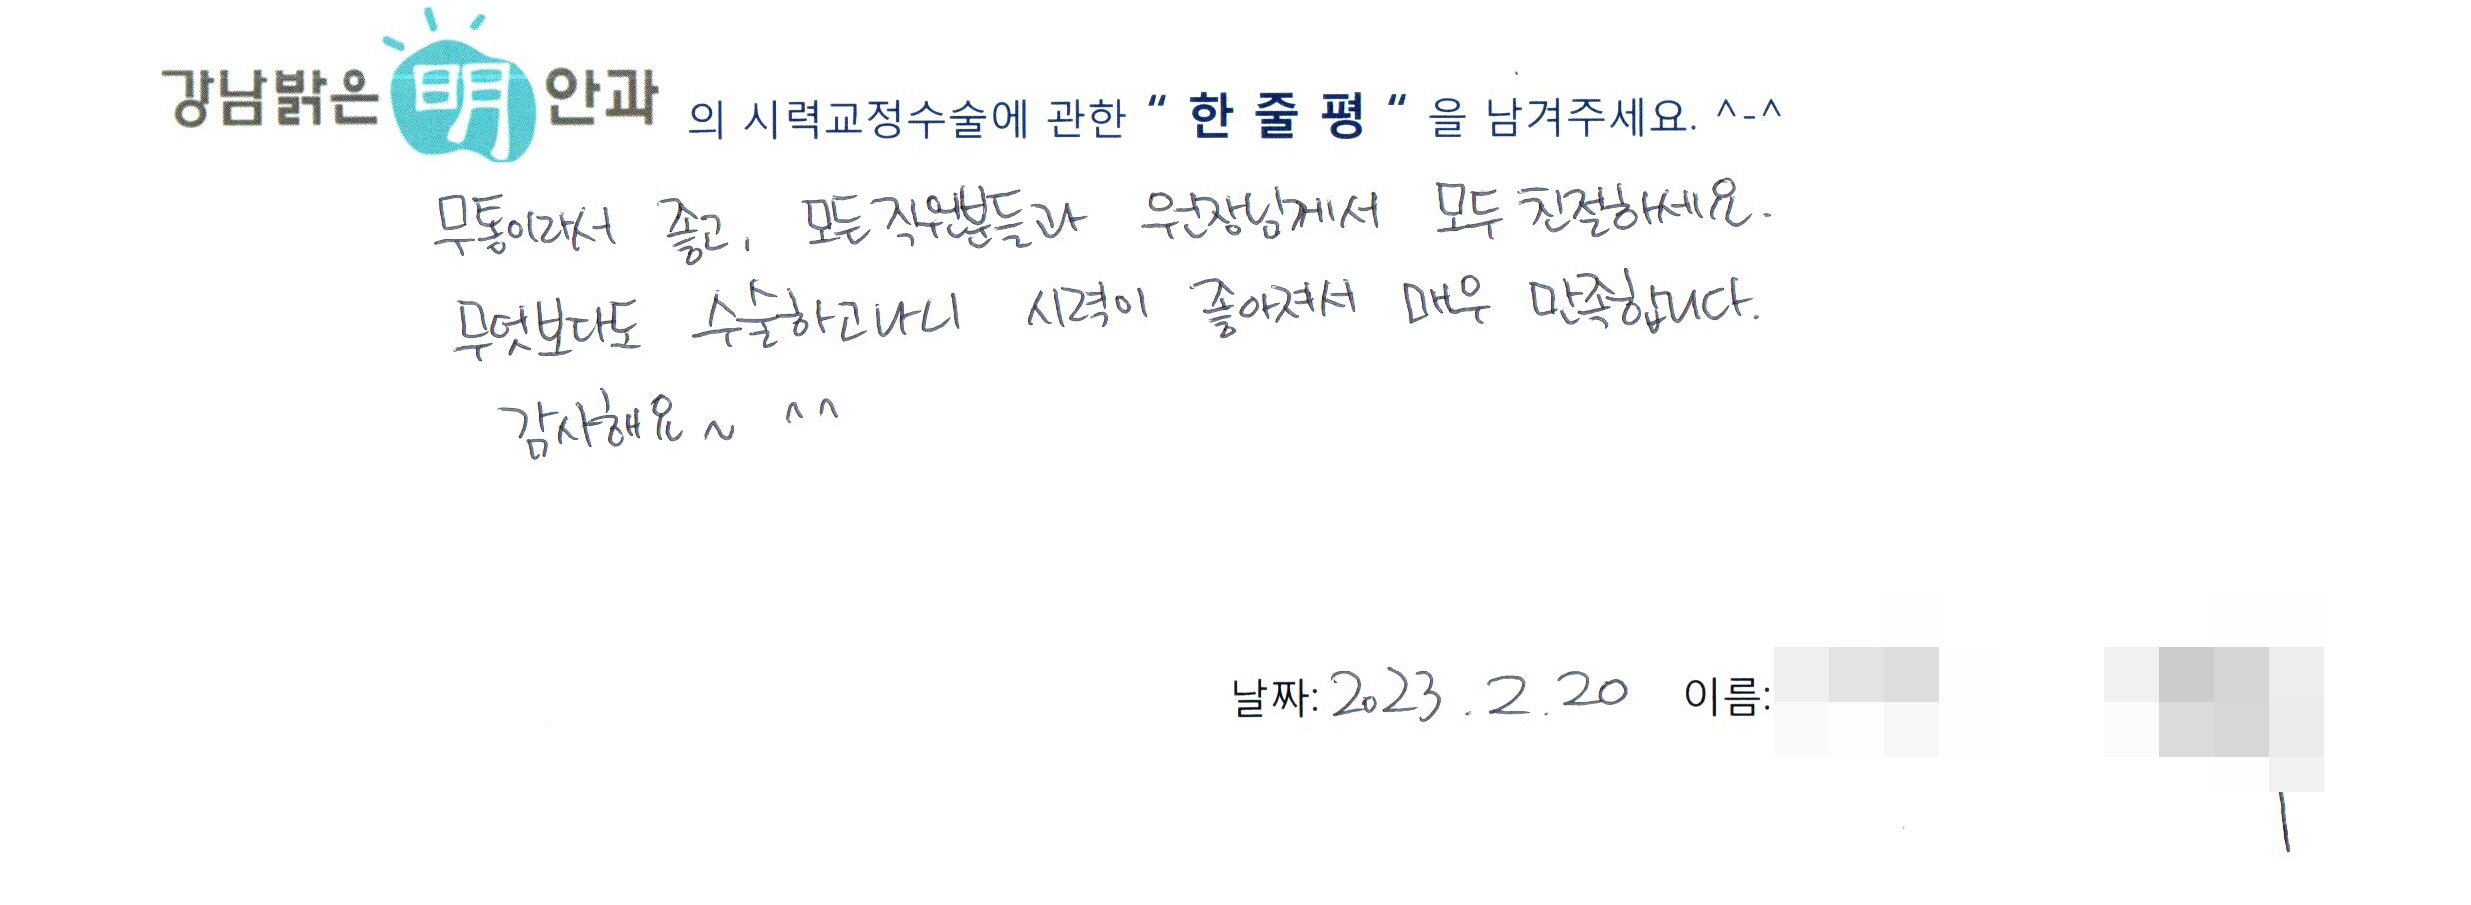 강남밝은明안과 의 시력교정수술에 관한 “ 한 줄 평 “ 을 남겨주세요. ^-^
무통이라서 좋고, 모든직원분들과 원장님께서 모두 친절하세요.
무엇보다도 수술하고나니 시력이 좋아져서 매우 만족합니다.
감사해요~ ^^
날짜: 2023.2.20 이름: